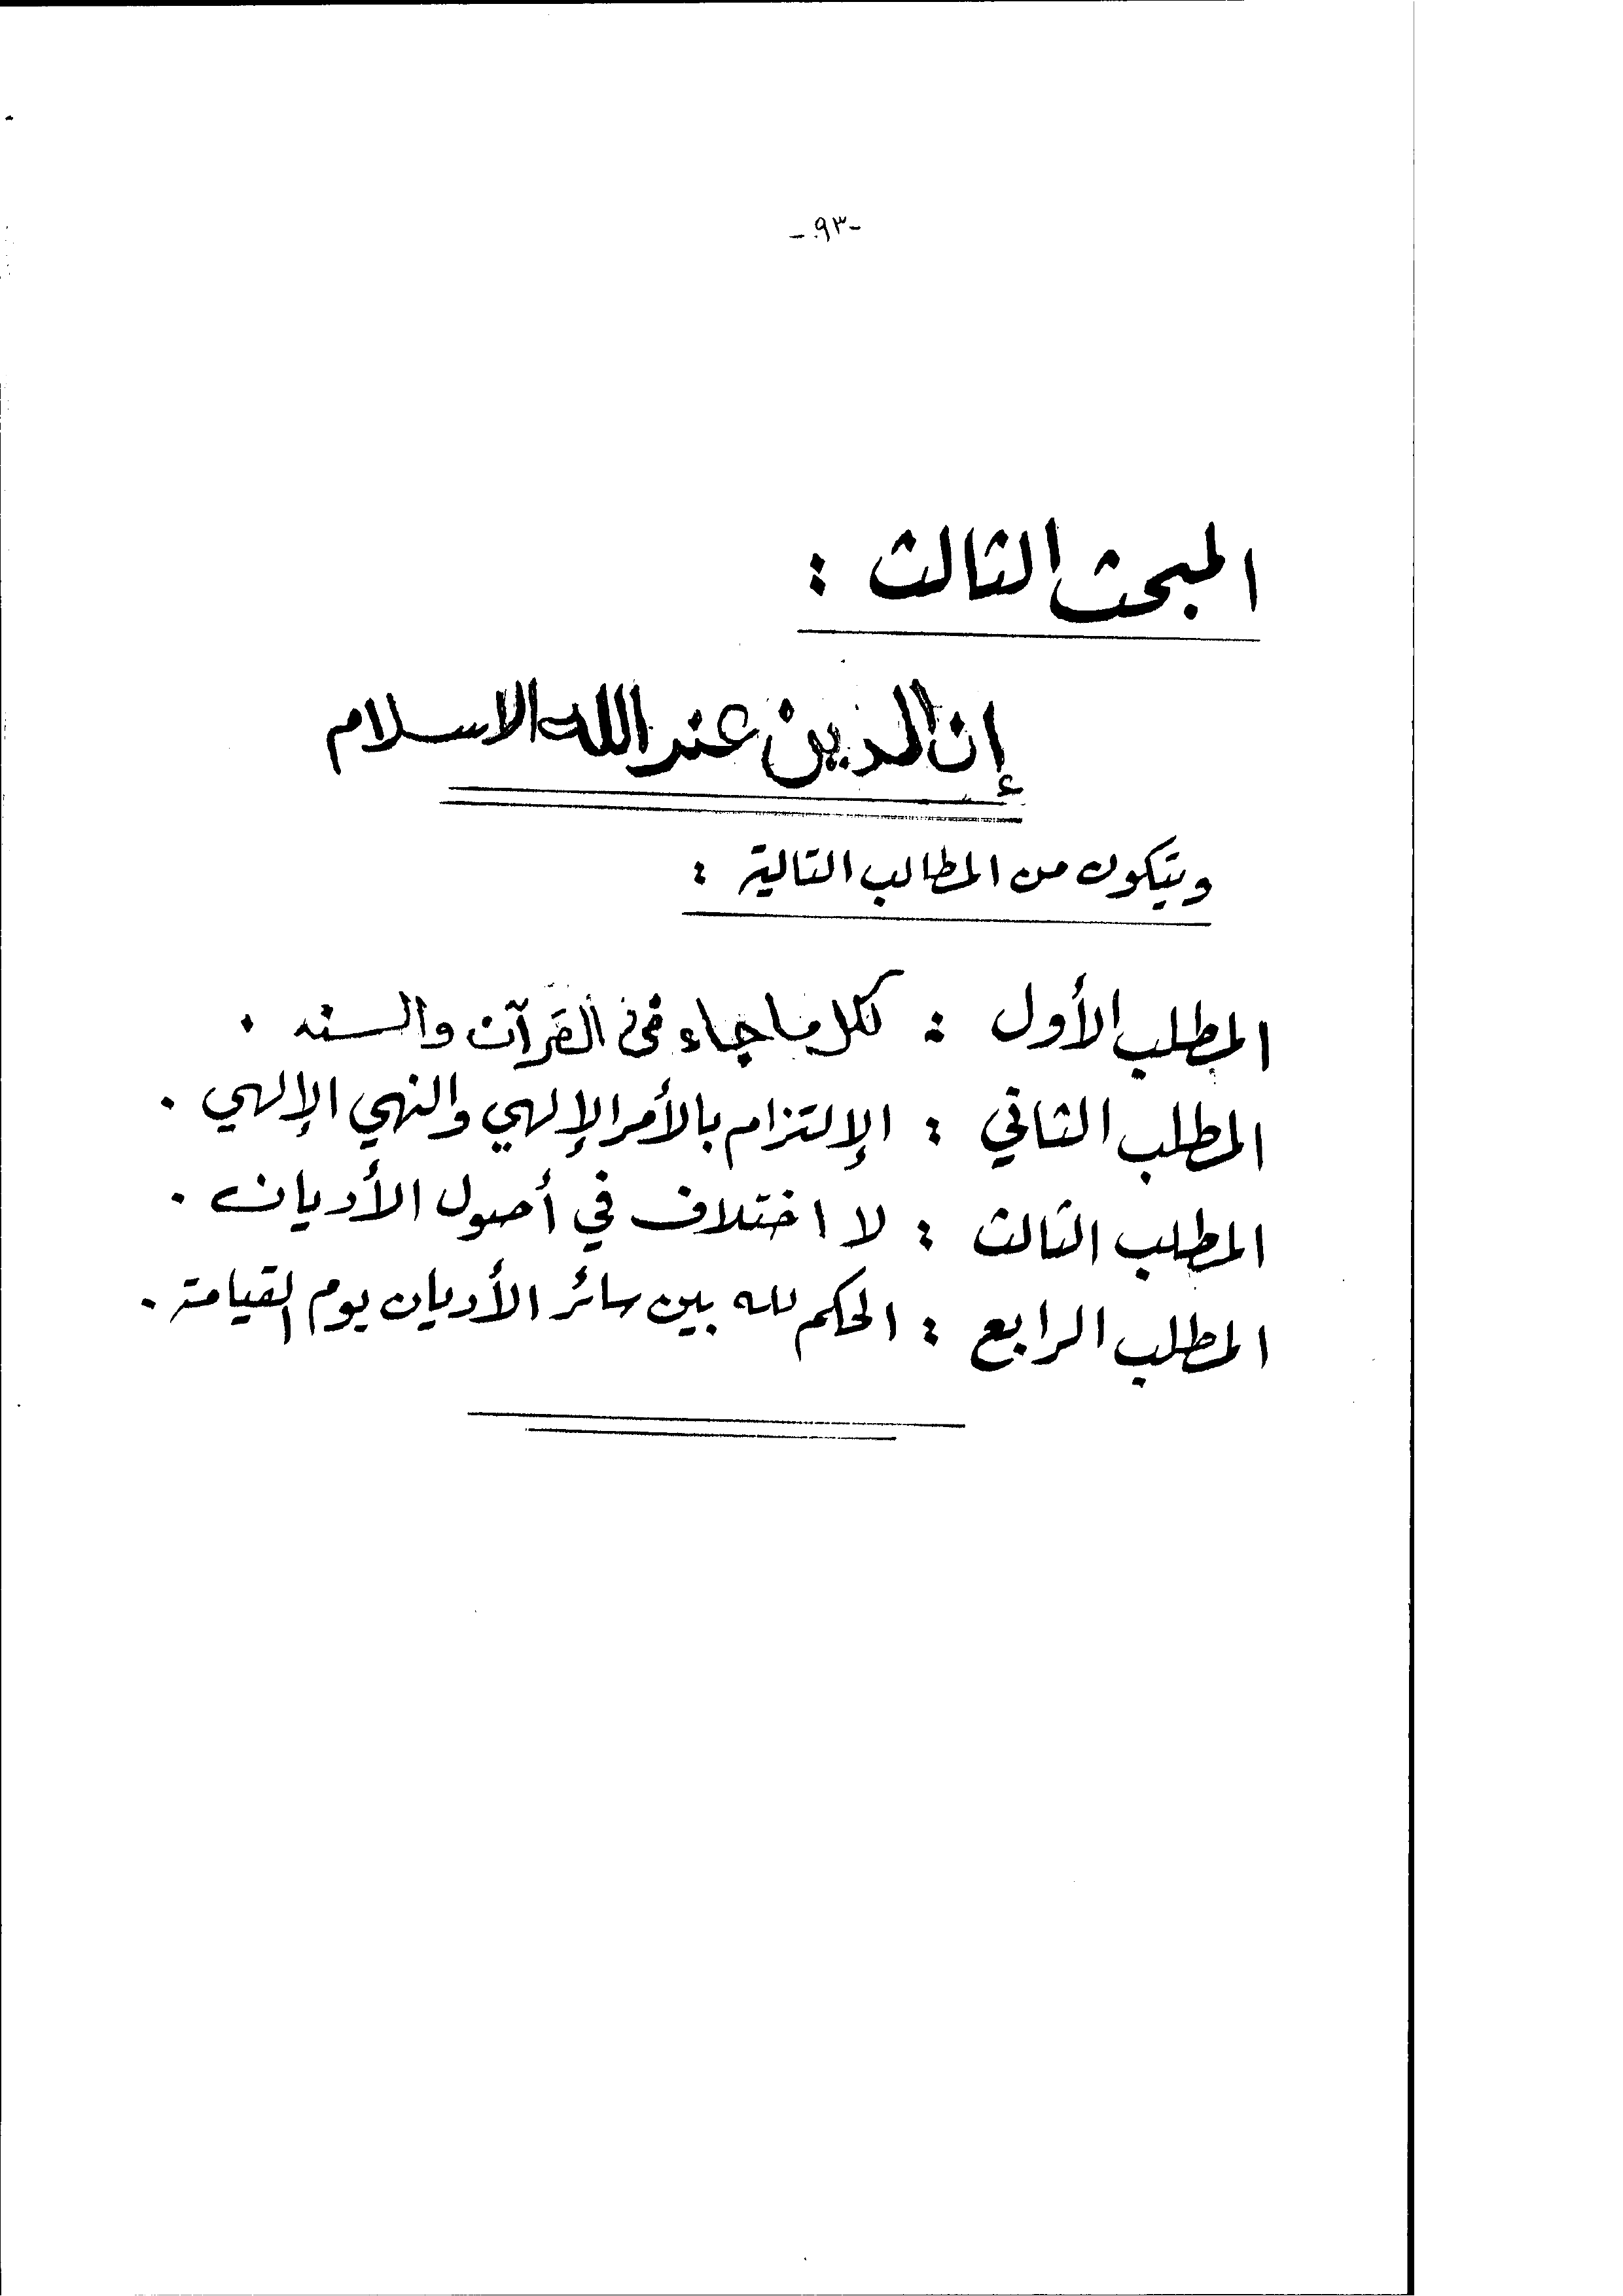 -٩٣-
المبحث الثالث :
إن الدين عند الله الاسلام
ويتكون من المطالب التالية :
المطلب الأول : لكل ما جاء في القرآن والسنه .
المطلب الثاني : الإلتزام بالأمر الإلهي والنهي الإلهي .
المطلب الثالث : لا اختلاف في أصول الأديان .
المطلب الرابع : الحكم لله بين سائر الأديان يوم القيامة .